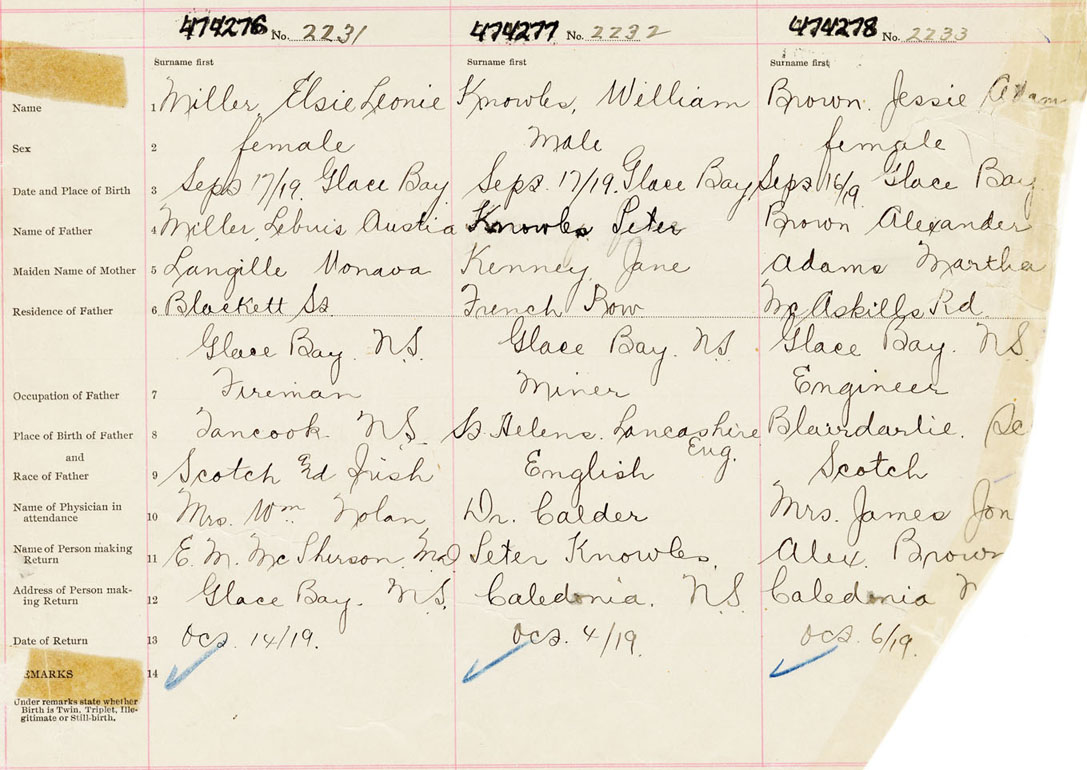 474276 No. 2231 474277 No. 2232 474278 No. 2233
Surname first Surname first Surname first
Name 1 Miller, Elsie Leonie Knowles, William Brown. Jessie Adam
Sex 2 female Male female
Date and Place of Birth 3 Sept 17/19. Glace Bay Sept. 17/19. Glace Bay Sept 16/19. Glace Bay
Name of Father 4 Miller, Austia Knowles Peter Brown Alexander
Maiden Name of Mother 5 Langille Monava Kenney, Jane Adams Martha
Residence of Father 6 Blackett St French Row McAskills Rd.
Glace Bay. N.S. Glace Bay. N.S Glace Bay. N.S.
Occupation of Father 7 Fireman Miner Engineer
Place of Birth of Father 8 Tancook N.S. St Helens. Lancashire Blairdardie. Sc
and Eng.
Race of Father 9 Scotch and Irish English Scotch
Name of Physician in
attendance 10 Mrs. Wm Nolan Dr. Calder Mrs. James Jon
Name of Person making
Return 11 E. M. McPherson. Md Peter Knowles. Alex. Brown
Address of Person mak-
ing Return 12 Glace Bay. N.S. Caledonia. N.S. Caledonia N
Date of Return 13 Oct. 14/19. Oct. 4/19. Oct. 6/19.
EMARKS 14
Under remarks state whether
Birth is Twin, Triplet, Ille-
gitimate or Still-birth.